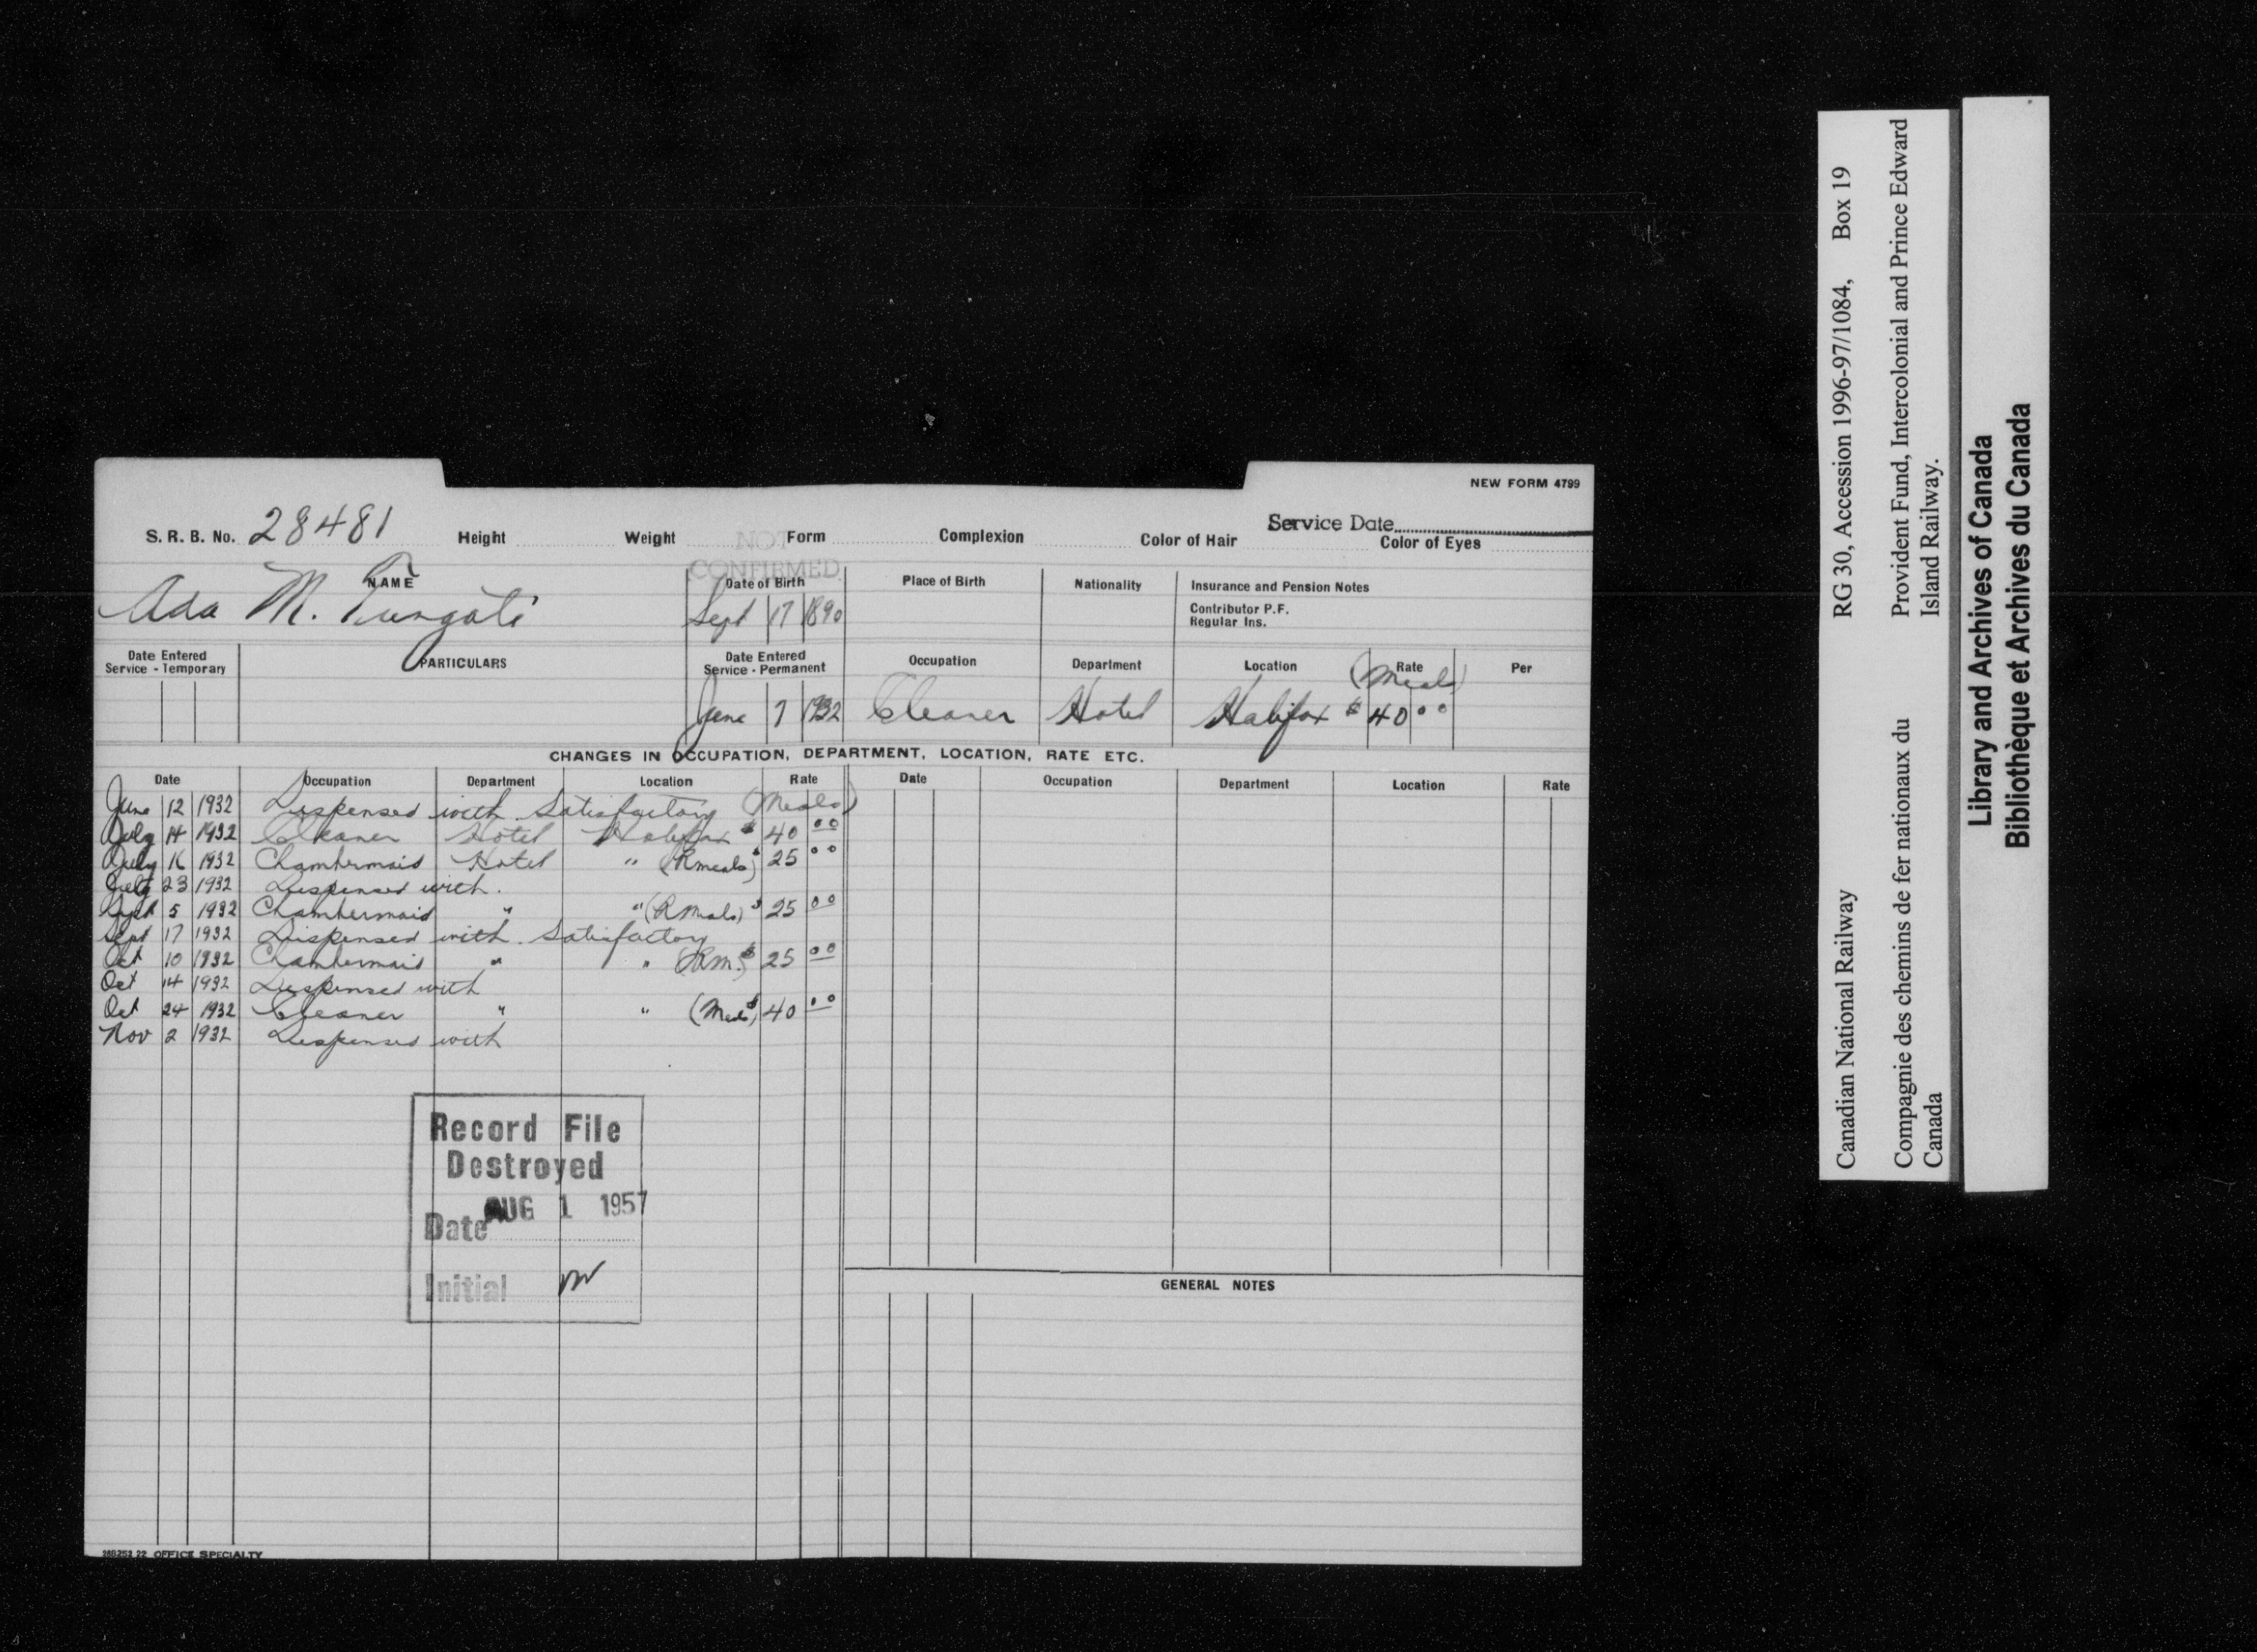 NEW FORM 4799
Service Date
S. R. B. No. 28481 Height Weight Form Complexion Color of Hair Color of Eyes
NOT CONFIRMED
NAME Date of Birth Place of Birth Nationality Insurance and Pension Notes
Ada M. Sept 17 1890 Contributor P.F.
Regular Ins.
Date Entered Service - Temporary PARTICULARS Date Entered Service - Permanent Occupation Department Location Rate Per
(Meals)
June 7 1932 Cleaner Hotel Halifax $ 40 00
CHANGES IN OCCUPATION, DEPARTMENT, LOCATION, RATE ETC.
Date Occupation Department Location Rate Date Occupation Department Location Rate
June 12 1932 Dispensed with Satisfactory (Meals)
July 14 1932 Cleaner Hotel Halifax $ 40 00
July 16 1932 Chambermaid Hotel " (R meals) $ 25 00
July 23 1932 Dispensed with.
Sept 5 1932 Chambermaid " " (R Meals) $ 25 00
Sept 17 1932 Dispensed with Satisfactory
Oct 10 1932 Chambermaid " " (R M.) $ 25 00
Oct 14 1932 Dispensed with
Oct 24 1932 Cleaner " " (Meals) $ 40 00
Nov 2 1932 Dispensed with
Record File
Destroyed
Date AUG 1 1957
Initial
GENERAL NOTES
OFFICE SPECIALTY
Canadian National Railway RG 30, Accession 1996-97/1084, Box 19
Compagnie des chemins de fer nationaux du Provident Fund, Intercolonial and Prince Edward
Canada Island Railway.
Library and Archives of Canada
Bibliothèque et Archives du Canada